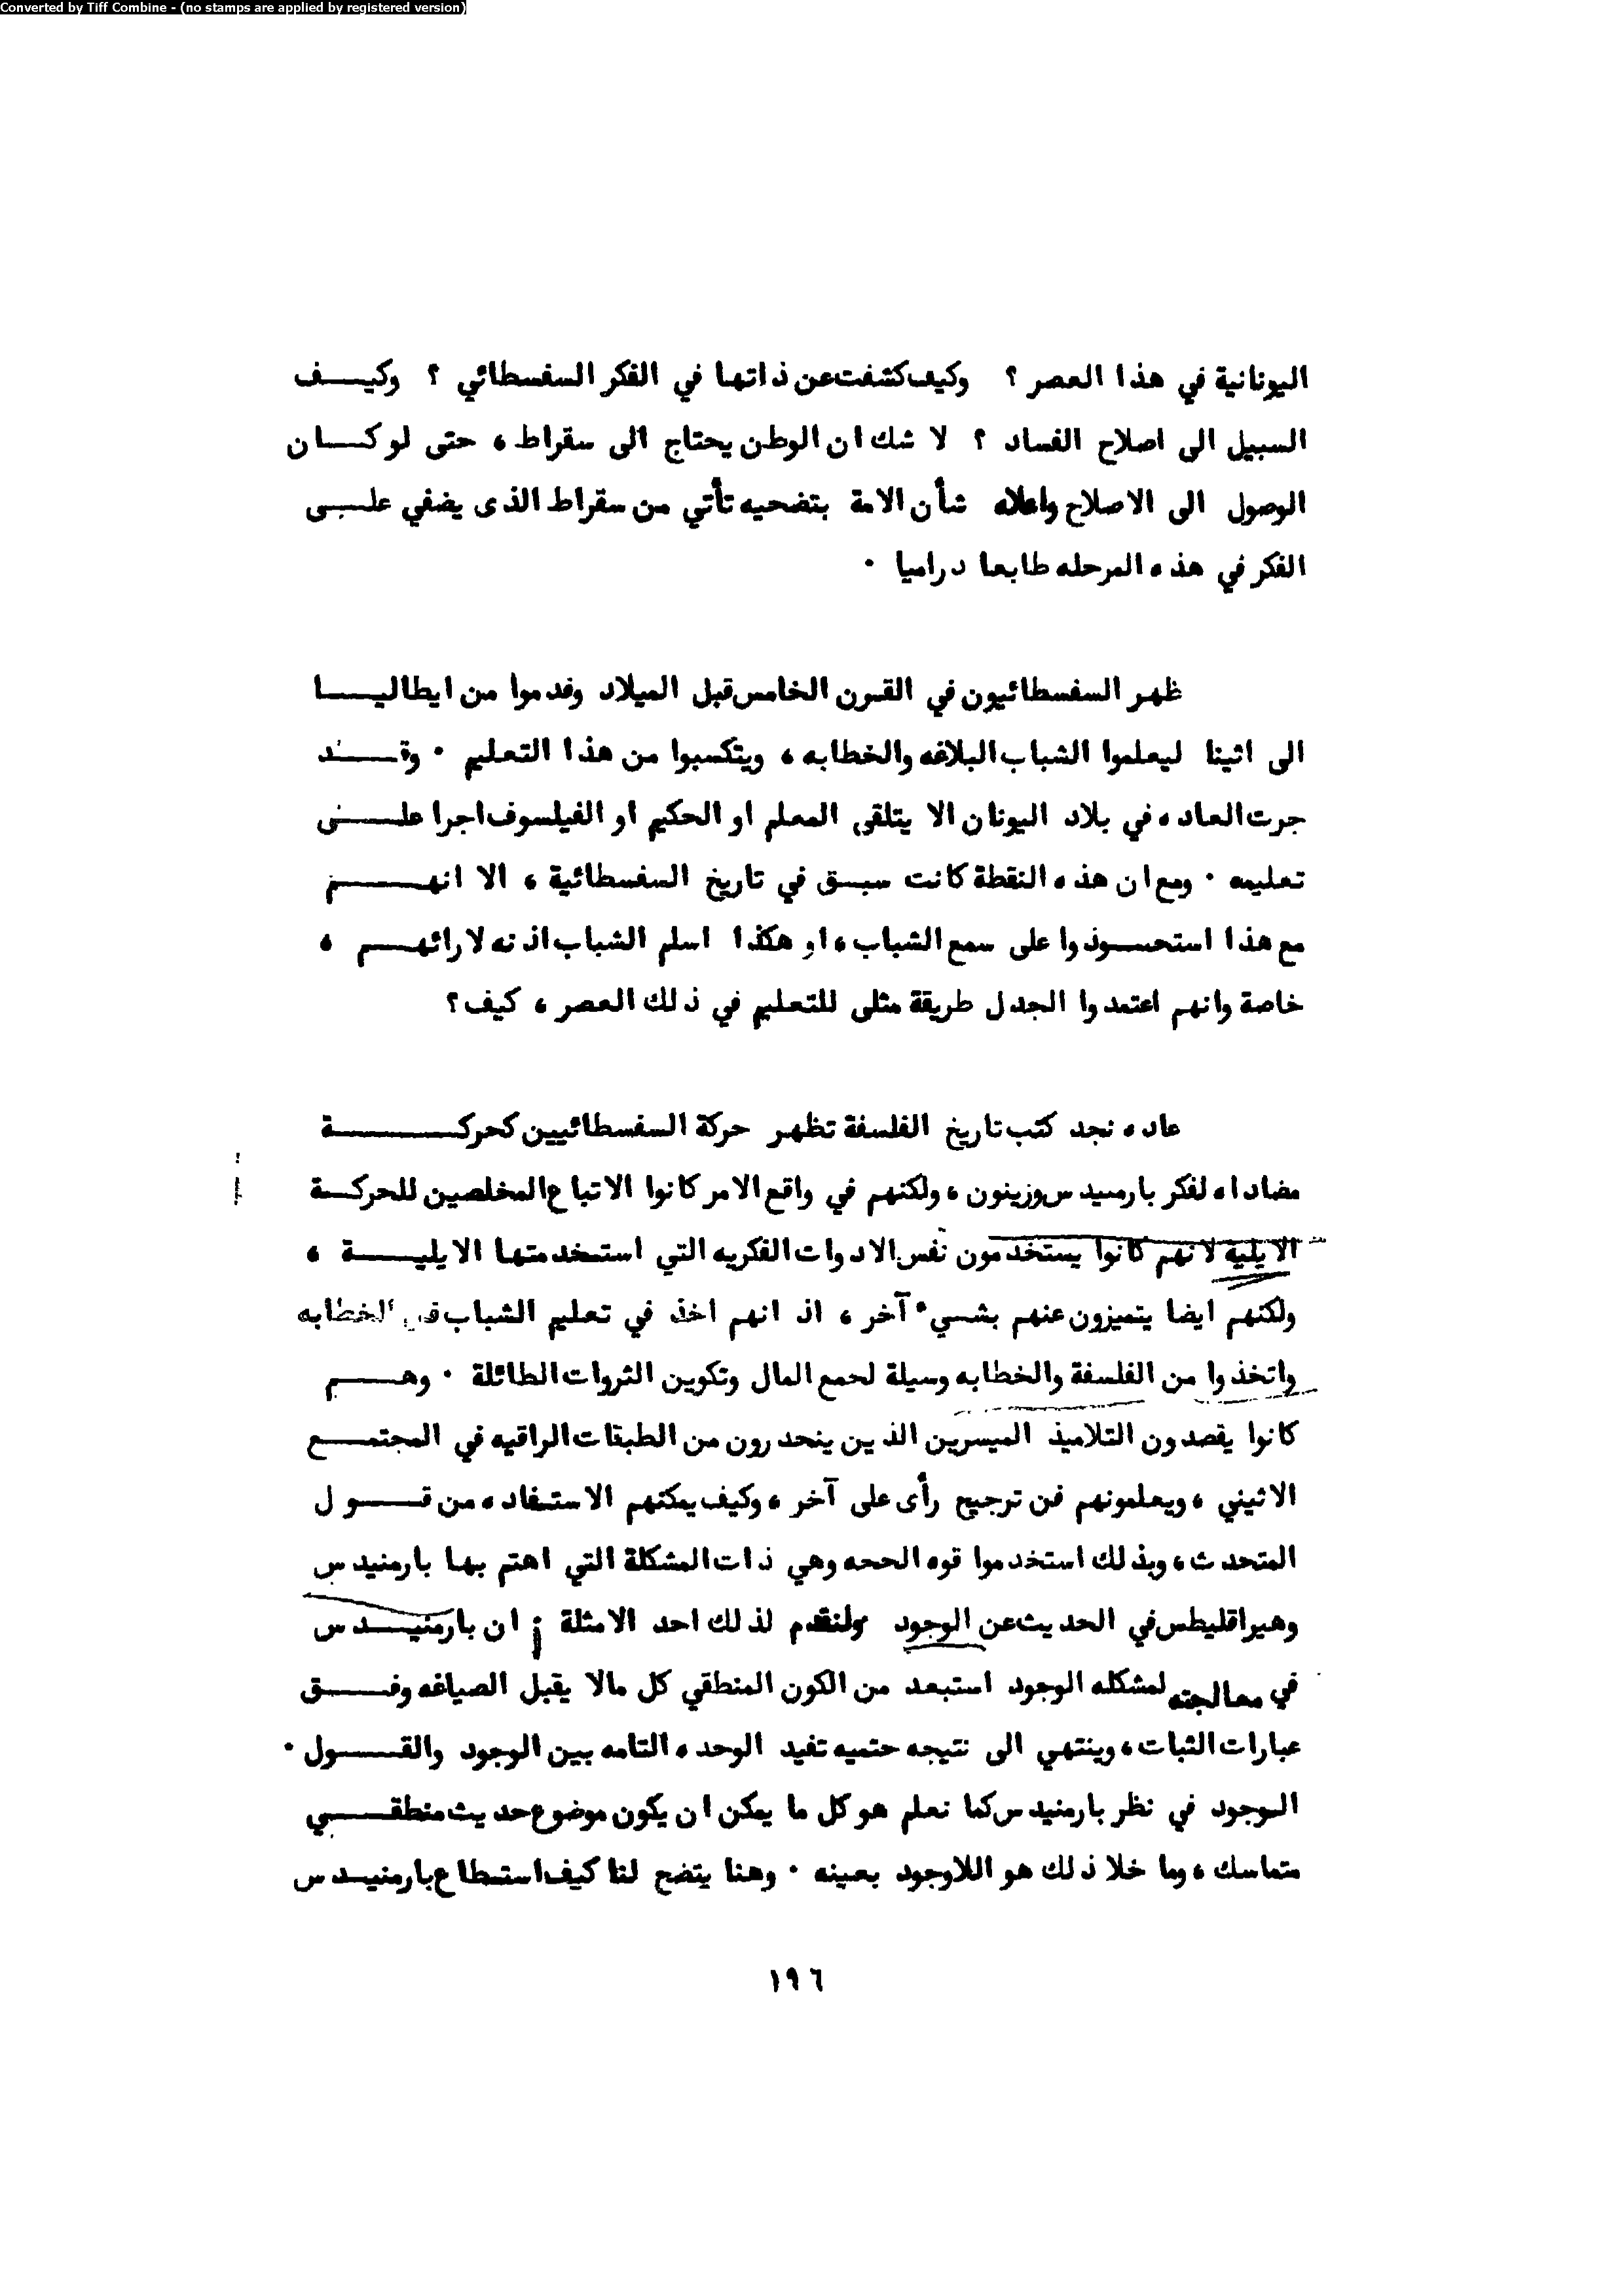 Converted by Tiff Combine - (no stamps are applied by registered version)
اليونانية في هذا العصر ؟ وكيف كشفت عن ذاتها في الفكر السفسطائي ؟ وكيـــف
السبيل الى اصلاح الفساد ؟ لا شك ان الوطن يحتاج الى سقراط ، حتى لو كـــان
الوصول الى الاصلاح واعلاء شأن الامة بتضحيه تأتي من سقراط الذى يضفي علــى
الفكر في هذه المرحله طابعا دراميا ٠
ظهر السفسطائيون في القرن الخامس قبل الميلاد وقدموا من ايطاليـــا
الى اثينا ليعلموا الشباب البلاغه والخطابه ، ويتكسبوا من هذا التعليم ٠ وقــــد
جرت العاده في بلاد اليونان الا يتلقى المعلم او الحكيم او الفيلسوف اجرا علـــى
تعليمه ٠ ومع ان هذه النقطة كانت سبــق في تاريخ السفسطائية ، الا انهـــــم
مع هذا استحســوذوا على سمع الشباب ، او هكذا اسلم الشباب اذنه لارائهـــم ،
خاصة وانهم اعتمدوا الجدل طريقة مثلى للتعليم في ذلك العصر ، كيف ؟
عاده نجد كتب تاريخ الفلسفة تظهر حركة السفسطائيين كحركـــــــة
مضاداه لفكر بارميدس وزينون ، ولكنهم في واقع الامر كانوا الاتباع المخلصين للحركــة
الايلية لانهم كانوا يستخدمون نفس الادوات الفكريه التي استخدمتها الايليــــة ،
ولكنهم ايضا يتميزون عنهم بشيء آخر ، اذ انهم اخذ في تعليم الشباب فن الخطابه
واتخذوا من الفلسفة والخطابه وسيلة لجمع المال وتكوين الثروات الطائلة ٠ وهـــم
كانوا يقصدون التلاميذ الميسرين الذين ينحدرون من الطبقات الراقيه في المجتمــــع
الاثيني ، ويعلمونهم فن ترجيح رأى على آخر ، وكيف يمكنهم الاستفاده من قـــول
المتحدث ، وبذلك استخدموا قوه الحجه وهي ذات المشكلة التي اهتم بها بارمنيدس
وهيراقليطس في الحديث عن الوجود ولنقدم لذلك احد الامثلة ; ان بارمنيـــدس
في معالجته لمشكله الوجود استبعد من الكون المنطقي كل مالا يقبل الصياغه وفـــق
عبارات الثبات ، وينتهي الى نتيجه حتميه تفيد الوحده التامه بين الوجود والقـــول ٠
الوجود في نظر بارمنيدس كما نعلم هو كل ما يمكن ان يكون موضوع حديث منطقـــي
متماسك ، وما خلا ذلك هو اللاوجود بعينه ٠ وهنا يتضح لنا كيف استطاع بارمنيـدس
١٩٦